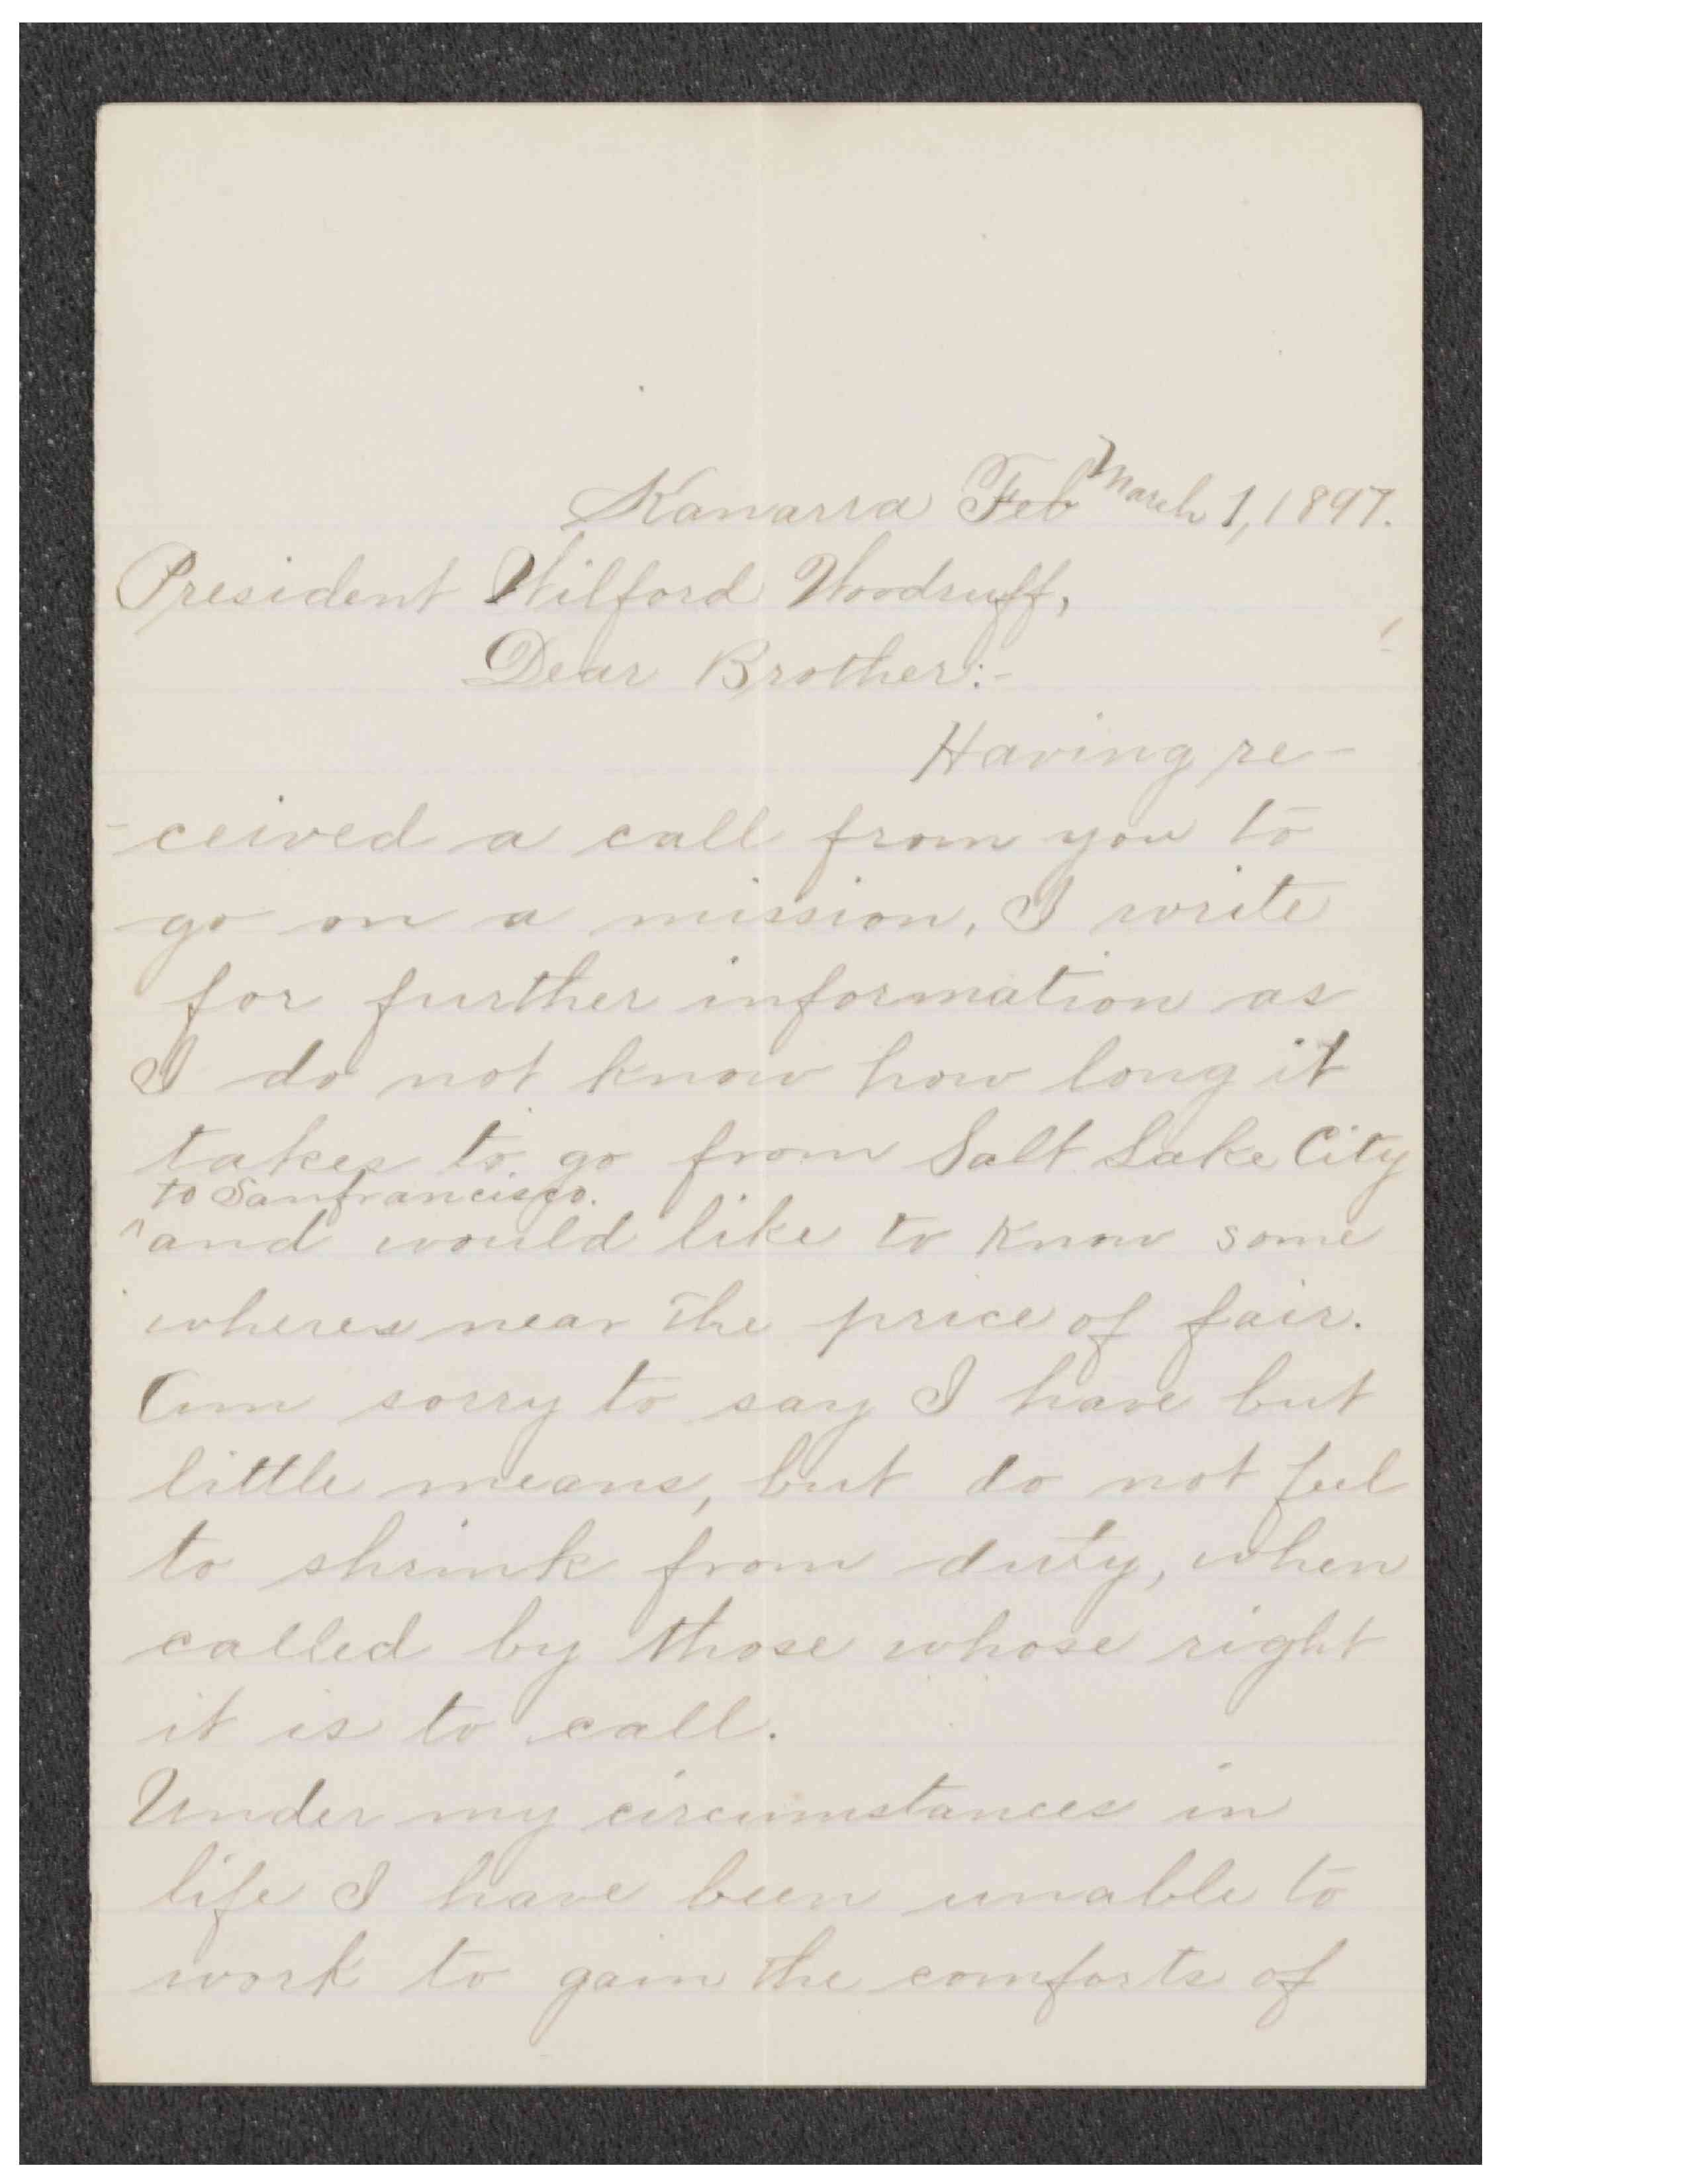 Kanarra Feb March 1, 1897.
President Wilford Woodruff,
Dear Brother:-
Having re-
-ceived a call from you to
go on a mission, I write
for further information as
I do not know how long it
takes to go from Salt Lake City
to Sanfrancisco.
^and would like to know some
wheres near the price of fair.
Am sorry to say I have but
little means, but do not feel
to shrink from duty, when
called by those whose right
it is to call.
Under my circumstances in
life I have been unable to
work to gain the comforts of